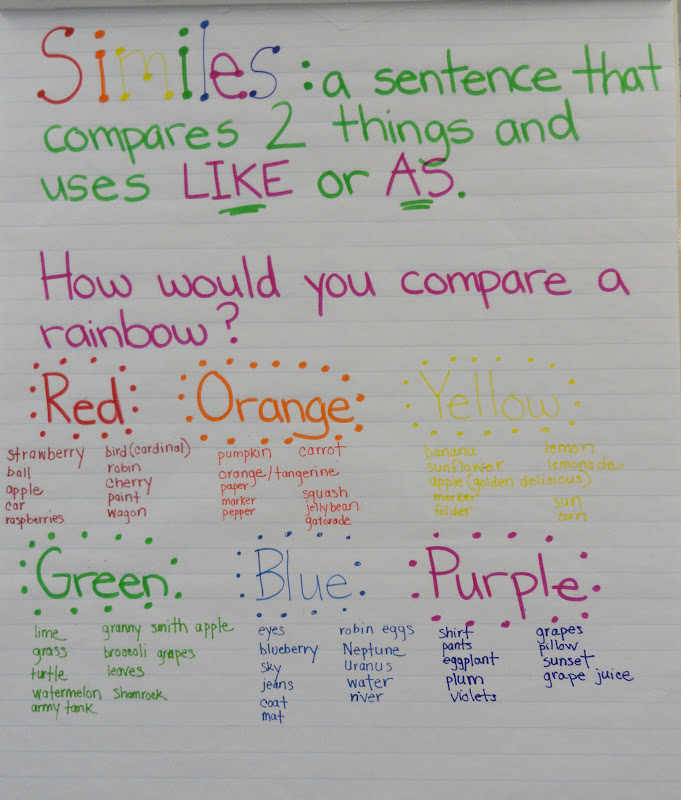 Similes: a sentence that
compares 2 things and
uses LIKE or AS.
How would you compare a
rainbow?
Red
strawberry
ball
apple
car
raspberries
bird (cardinal)
robin
cherry
paint
wagon
Orange
pumpkin carrot
orange/tangerine
paper
marker
pepper
squash
jellybean
gatorade
Yellow
banana
sunflower
apple (golden delicious)
marker
folder
lemon
lemonade
sun
corn
Green
lime granny smith apple
grass broccoli grapes
turtle leaves
watermelon shamrock
army tank
Blue
eyes
blueberry
sky
jeans
coat
mat
robin eggs
Neptune
Uranus
water
river
Purple
shirt
pants
eggplant
plum
violets
grapes
pillow
sunset
grape juice